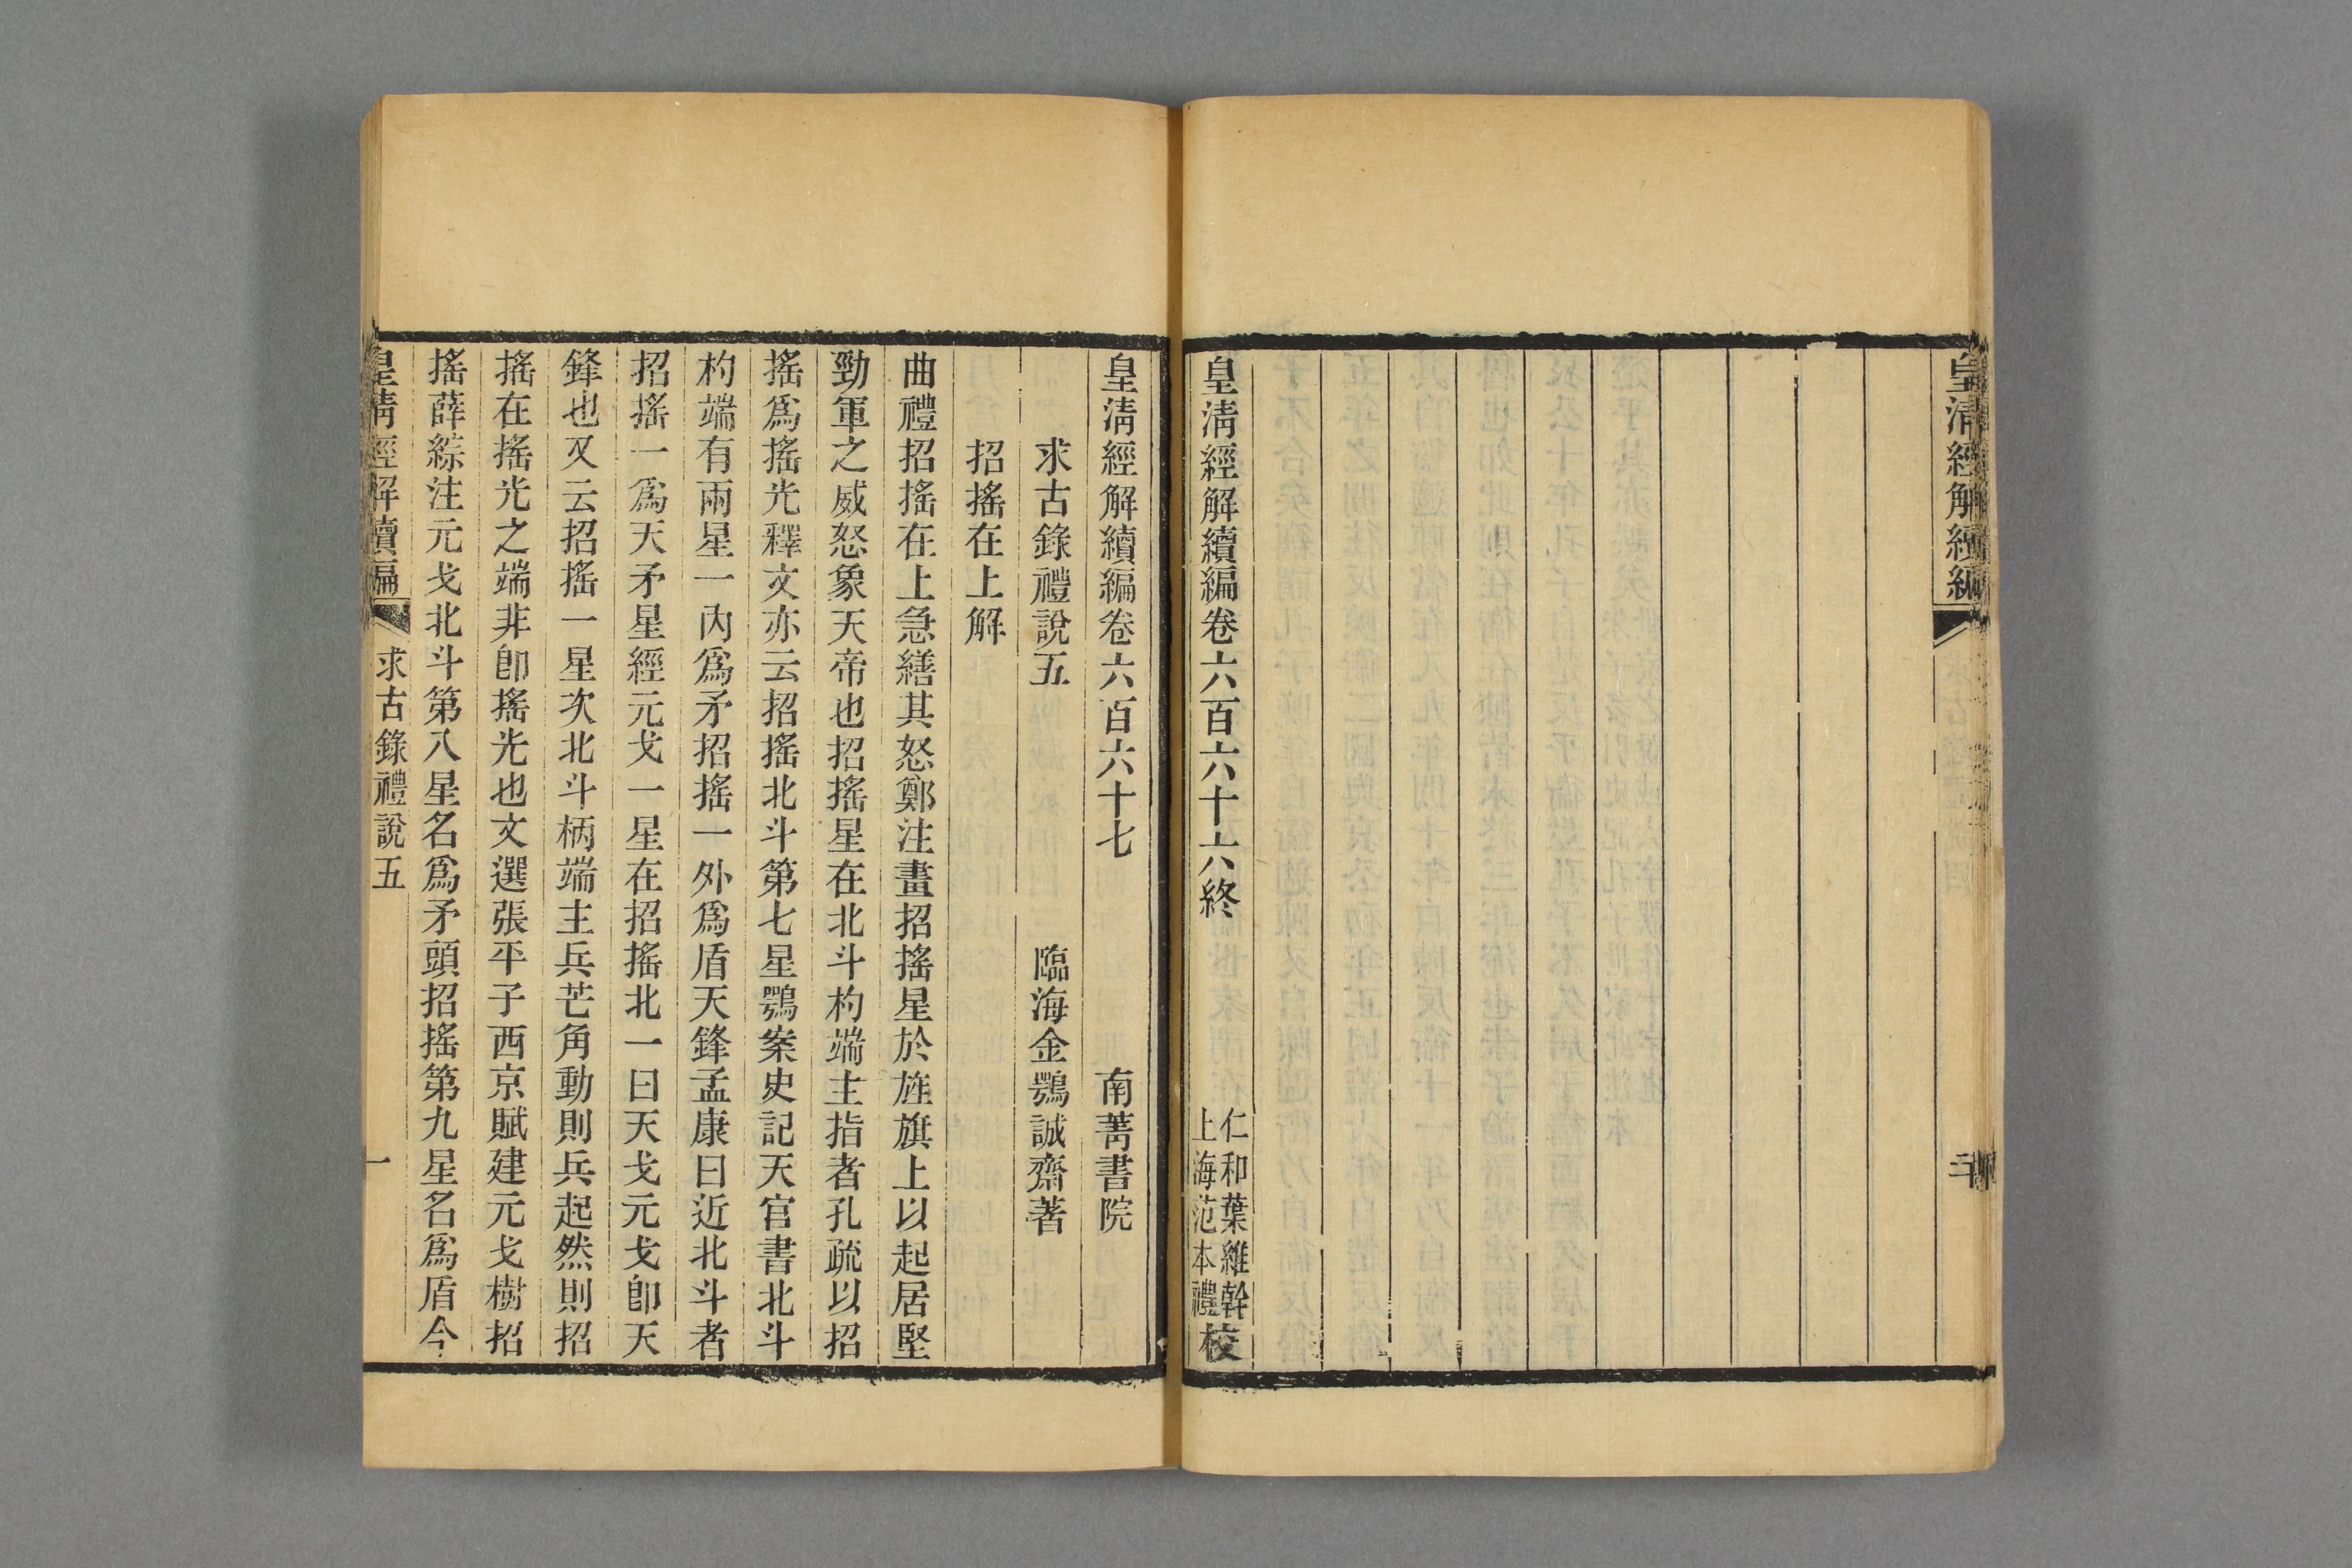 皇清經解續編
皇清經解續編卷六百六十六終
仁和葉維幹
上海范本禮
校
皇清經解續編卷六百六十七
南菁書院
求古錄禮說五
臨海金鶚誠齋著
招搖在上解
曲禮招搖在上急繕其怒鄭注畫招搖星於旌旗上以起居堅
勁軍之威怒象天帝也招搖星在北斗杓端主指者孔疏以招
搖爲搖光釋文亦云招搖北斗第七星鶚案史記天官書北斗
杓端有兩星一內爲矛招搖一外爲盾天鋒孟康曰近北斗者
招搖一爲天矛星經元戈一星在招搖北一曰天戈元戈卽天
鋒也又云招搖一星次北斗柄端主兵芒角動則兵起然則招
搖在搖光之端非卽搖光也文選張平子西京賦建元戈樹招
搖薛綜注元戈北斗第八星名爲矛頭招搖第九星名爲盾今
皇清經解續編
求古錄禮說五
一